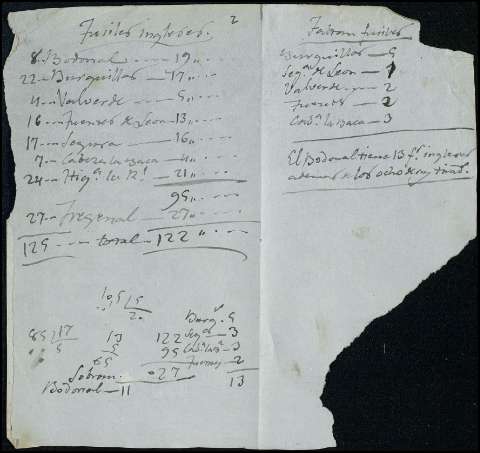 Fusiles ingleses.
2
8. Bodonal ---- 19 "..
22.. Burguillos --- 17 "..
4.. Valverde --- 5 "..
16 -- Fuentes de Leon - 13 "..
17 -- Segura --- 16 "..
7 -- Cabeza la Baca -- 4 "..
24 -- Hig.a la R.l - 21 "..
95 "..
27 -- Fregenal ---- 27 "..
125 ---- total - 122 "..
105 | 5
20
85 | 17
5
13
5
65
122
95
027
Burg.s 5
Seg.a - 3
Cab.a la Ba.a - 3
Fuentes - 2
13
Sobran
Bodonal - 11
Faltan fusiles
Burguillos - 5
Seg.a de Leon - 1
Valverde - 2
Fuentes - 2
Cab.a la Baca - 3
El Bodonal tiene 13 f.s ingleses
ademas de los ocho